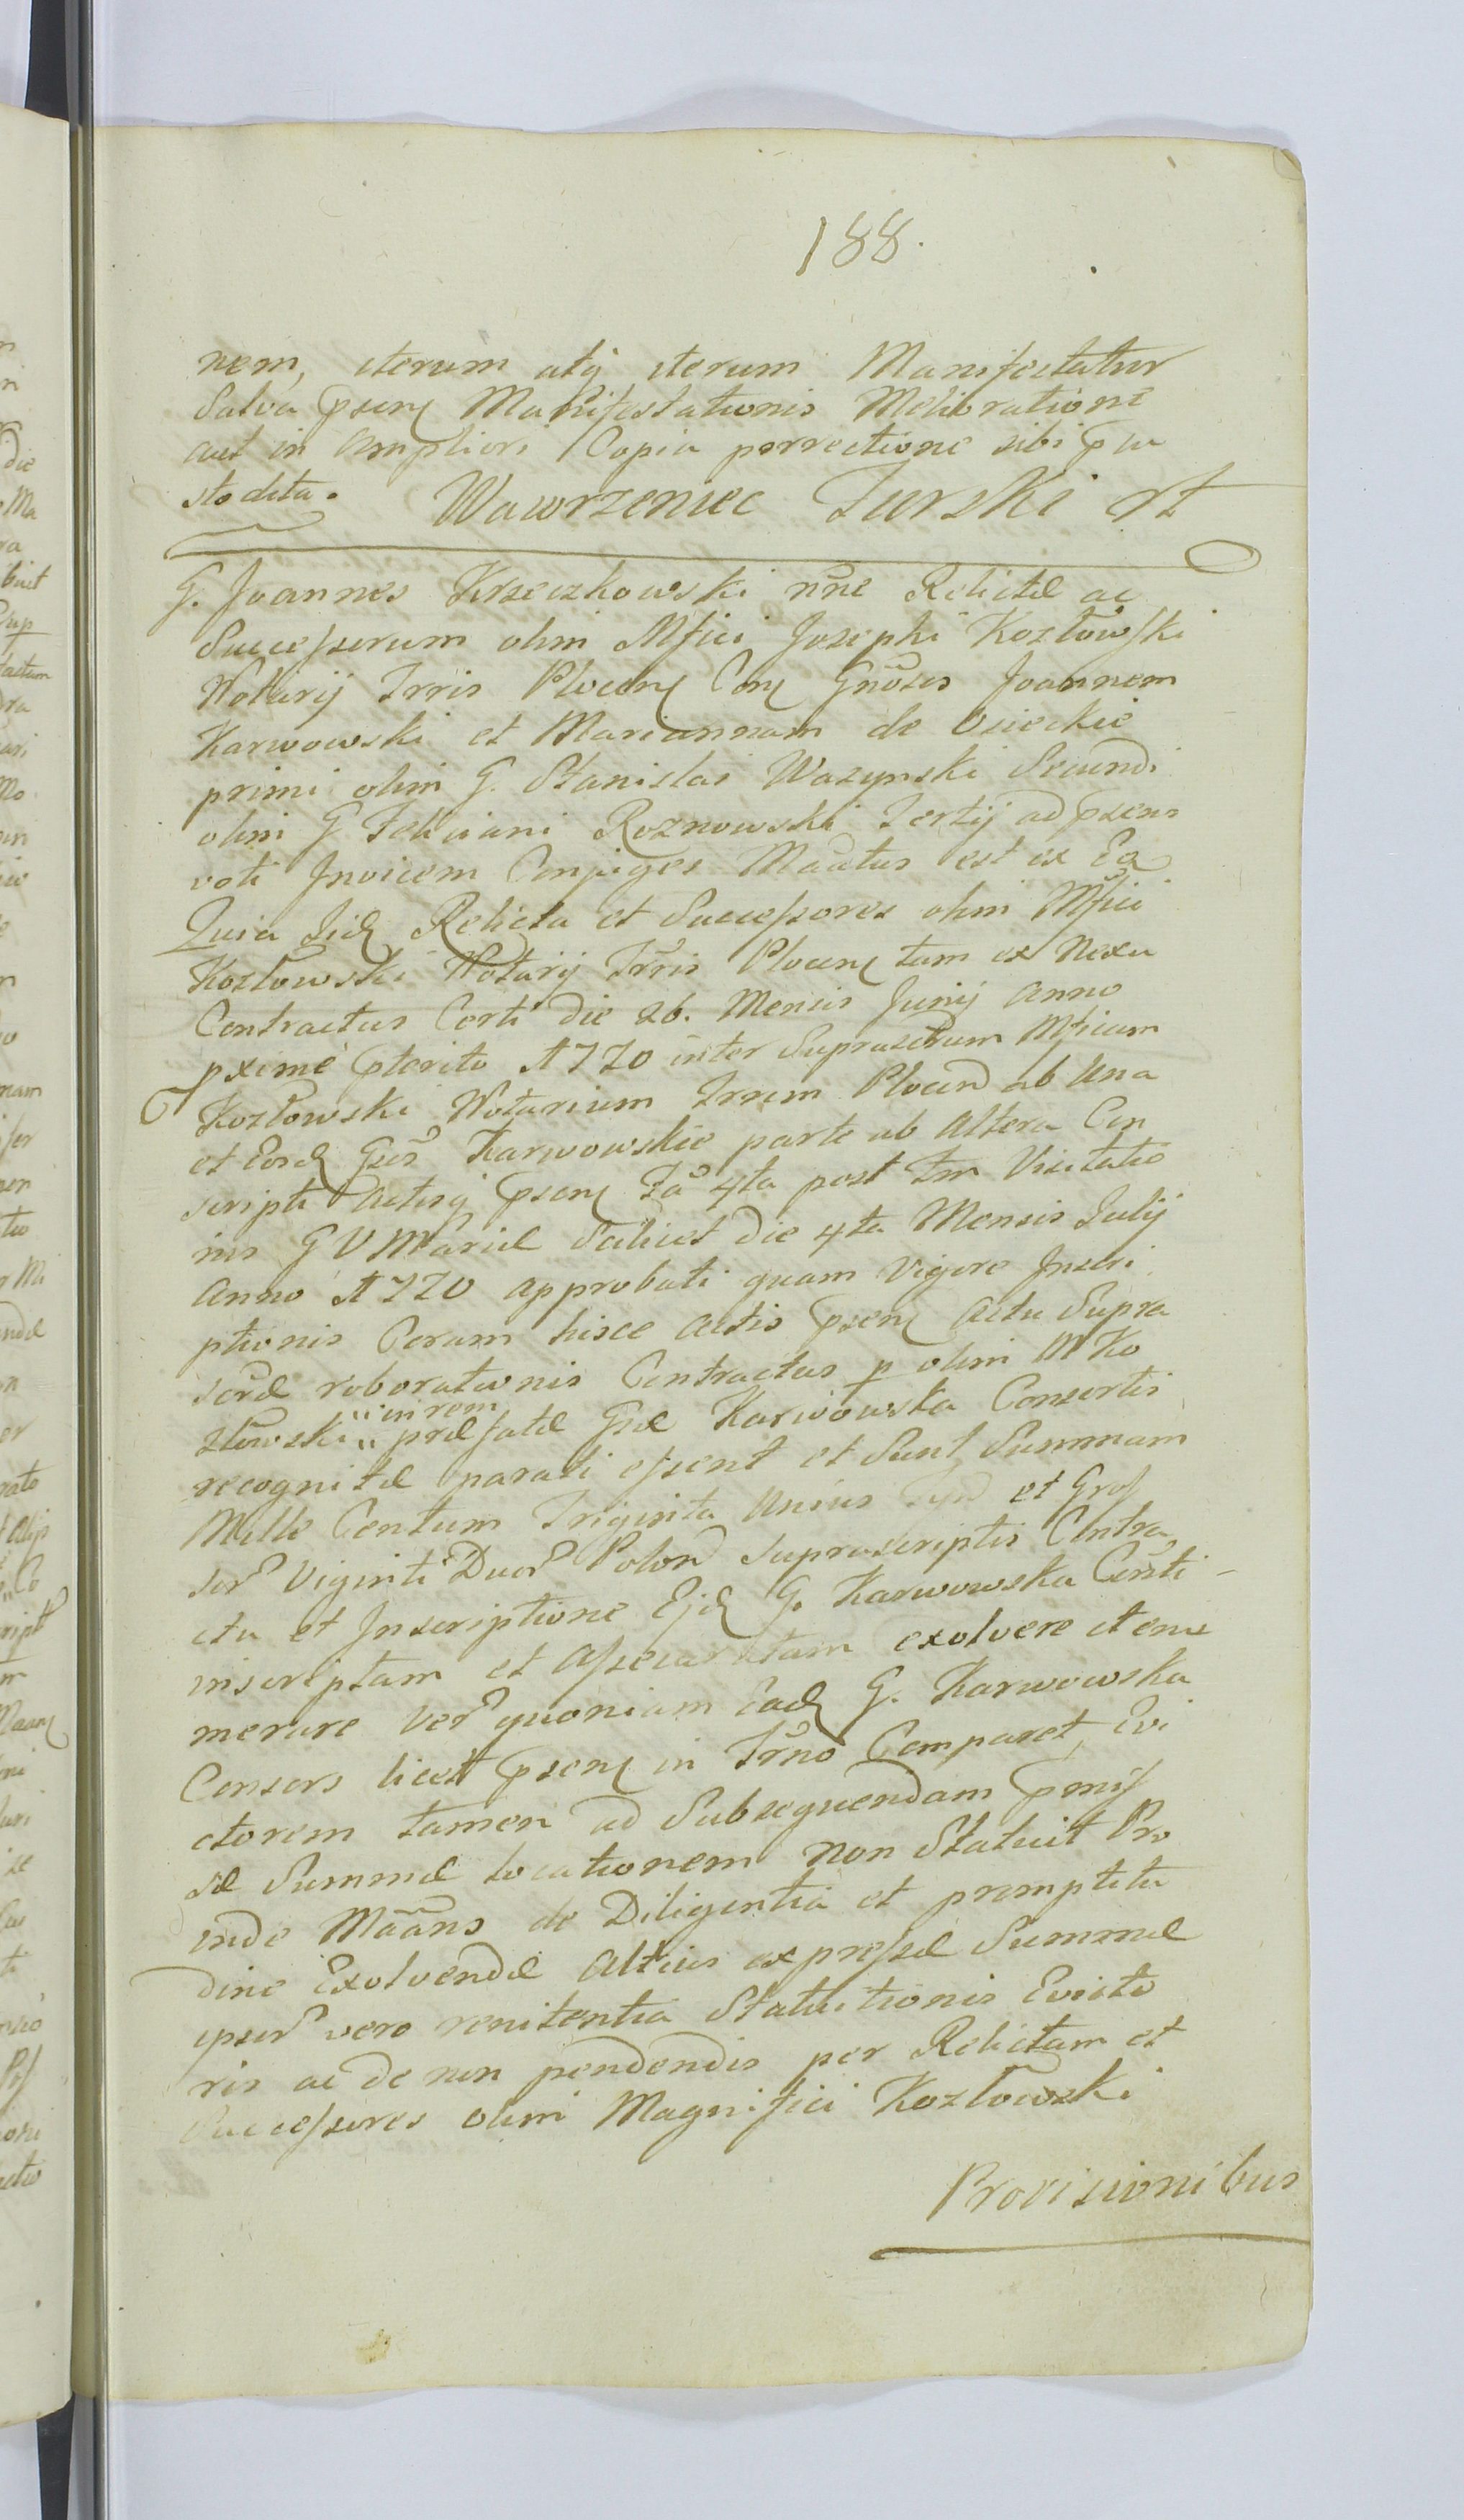 188.
nem, iterum atq iterum Manifestatur
Salva psenq Manifestationis Melioratione
aut in Ampliori Copia porrectione sibi p cu
stodita. Wawrzeniec Turski
G. Joannes Krzeczkowski nne Relictæ ac
Successorum olim Mfici Josephi Kozłowski
Notarij Trris Plocenq Conq Gnosos Joannem
Karwowski et Mariannam de Osieckie
primi olim G. Stanislai Wazynski Secundi
olim G Feliciani Roznowski Tertij ad psens
voti Invicem Conjuges Maatus est ex Eo
Quia Iidq Relicta et Successores olim Mfici
Kozłowski Notarij Trris Plocenq tam ex Nexu
Contractus Certi Die 26. Mensis Junij Anno
pxime pterito 1770 inter Suprascrtum Mficum
Kozłowski Notarium Trrem Plocen ab Una
et Eosdq Gsos Karwowskie parte ab Altera Con
scripti Actisq psenq Fa 4ta post Fm Visitatio
nis G V Mariæ Scilicet Die 4ta Mensis Julij
Anno 1770 approbati quam Vigore Inscri
ptionis Coram hisce Actis psenq Actu Supra
scræ roborationis Contractus p olim M Ko
złowski "in rem" præfatæ Gsæ Karwowska Consortis
recognitæ parati essent et Sunt Summam
Mille Centum Triginta Unius et Gros
sor Viginti Duor Polon Suprascriptis Contra
ctu et Inscriptione Ejdq G. Karwowska Consti
inscriptam et Assecuratam exolvere et enu
merare Ver quoniam Eadq G. Karwowska
Consors licet psenq in Trno Comparet, Evi
ctorem tamen ad Subsequendam pmis
sæ Summæ locationem non Statuit Pro
inde Maans de Diligentia et promptitu
dine Exolvendæ Altius expressæ Summæ
ipsor vero renitentia Statuitionis Evicto
ris ac de non pendendis per Relictam et
Successores olim Magnifici Kozłowski
Provisionibus